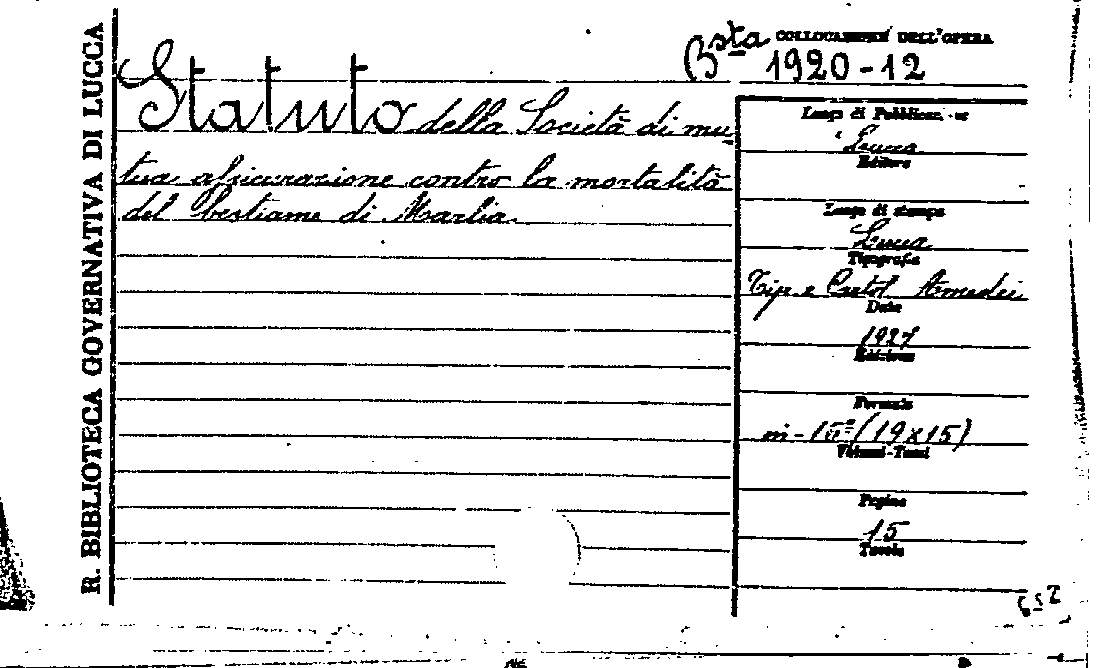 R. BIBLIOTECA GOVERNATIVA DI LUCCA
COLLOCAZIONE DELL'OPERA
Bsta 1920-12
Statuto della Società di mu-
tua assicurazione contro la mortalità
del bestiame di Marlia.
Luogo di Pubblicaz.
Lucca
Editore
Luogo di stampa
Lucca
Tipografia
Tip. e Cartol. Amedei
Data
1921
Edizione
Formato
in-15° (19x15)
Volumi-Tomi
Pagine
15
Tavole